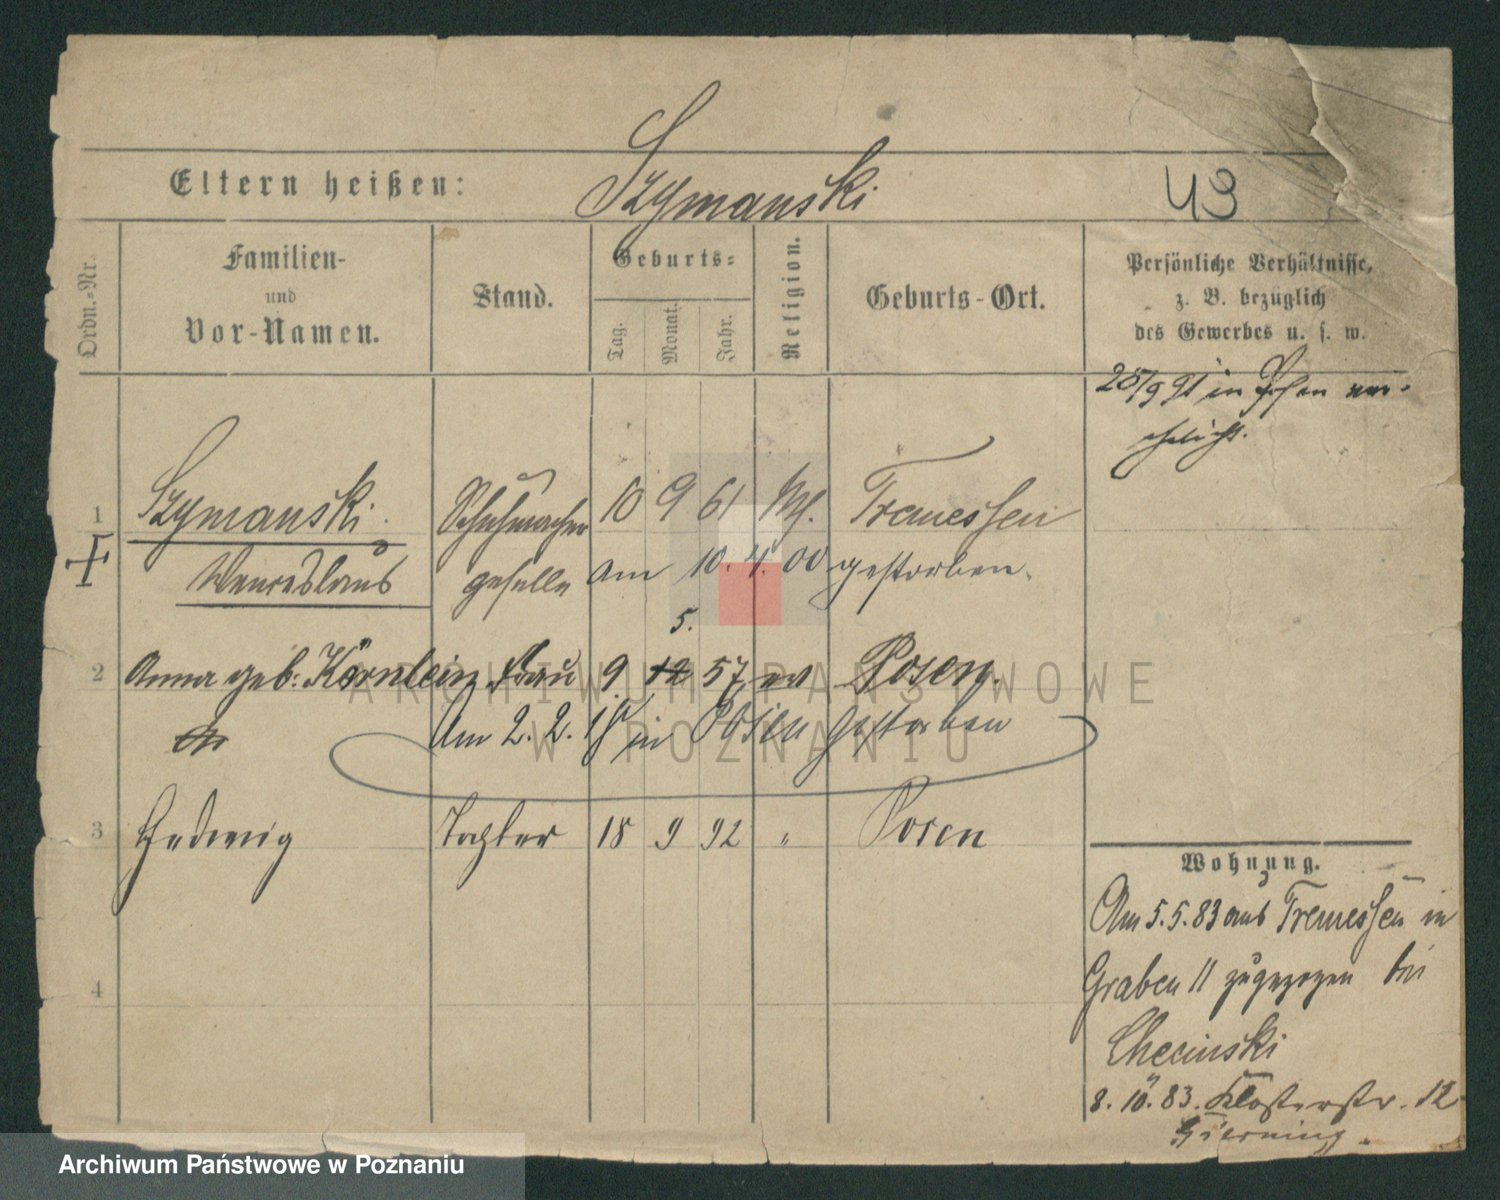 Szymanski
Eltern heißen:
43
Ordn.=Nr.
Familien-
und
Vor-Namen.
Stand.
Geburts=
Tag.
Monat.
Jahr.
Religion.
Geburts-Ort.
Persönliche Verhältnisse,
z. B. bezüglich
des Gewerbes u. s. w.
28/9 91 in Posen ver-
ehelicht.
1 Szymanski. Schuhmacher 10 9 61 Tremessen
Wenceslaus geselle am 10. 4. 00 gestorben.
5.
2 Anna geb: Körnlein Frau 9. 12 57 ev Posen.
Am 2. 2. in Posen gestorben
3 Hedwig Tochter 18 9 92 " Posen
4
Wohnung.
Am 5.5.83 aus Tremessen in
Graben 11 zugezogen bei
Checinski
8. 10. 83. Klosterstr. 12
ARCHIWUM PAŃSTWOWE
W POZNANIU
Archiwum Państwowe w Poznaniu